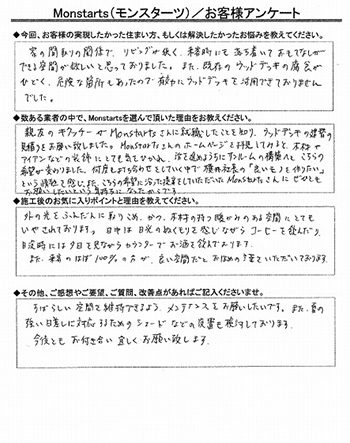 Monstarts(モンスターツ)/お客様アンケート
◆今回、お客様の実現したかった住まい方、もしくは解決したかったお悩みを教えてください。
家の間取りの関係で、リビングが狭く、来客時にも落ち着いておもてなしが
できる空間が欲しいと思っておりました。また、既存のウッドデッキの腐食が
ひどく、危険な箇所もあったので有効にウッドデッキを活用できておりません
でした。
◆数ある業者の中で、Monstartsを選んで頂いた理由をお教えください。
親友の Monstartsさんに就職したことを知り、ウッドデッキの
見積りをお願い致しました。Monstartsさんのホームページを拝見してみると、木材や
アイアンなどの とても 惹かれ、
希望が変わりました。何度も打ち合せをしていく中で 「良いモノを作りたい」
という 感じ、また、こちらの希望に沿った提案をしていただいたMonstartsさんにぜひとも
お願いしたいという
◆施工後のお気に入りポイントと理由をお教えください。
外の光をふんだんに取りこめ、かつ、木材の持つ暖かみのある空間にとても
いやされております。日中は日光のぬくもりを感じながらコーヒーを飲んだり、
夕日を見ながらカウンターでお酒を飲んでおります。
また、来客のほぼ100%の方が、良い空間だとおほめの言葉をいただいております。
◆その他、ご感想やご要望、ご質問、改善点があればご記入くださいませ。
すばらしい空間を維持できるよう、メンテナンスをお願いしたいです。また、夏の
強い日差しに対応するためのシェードなどの設置も検討しております。
今後ともお付き合い宜しくお願い致します。